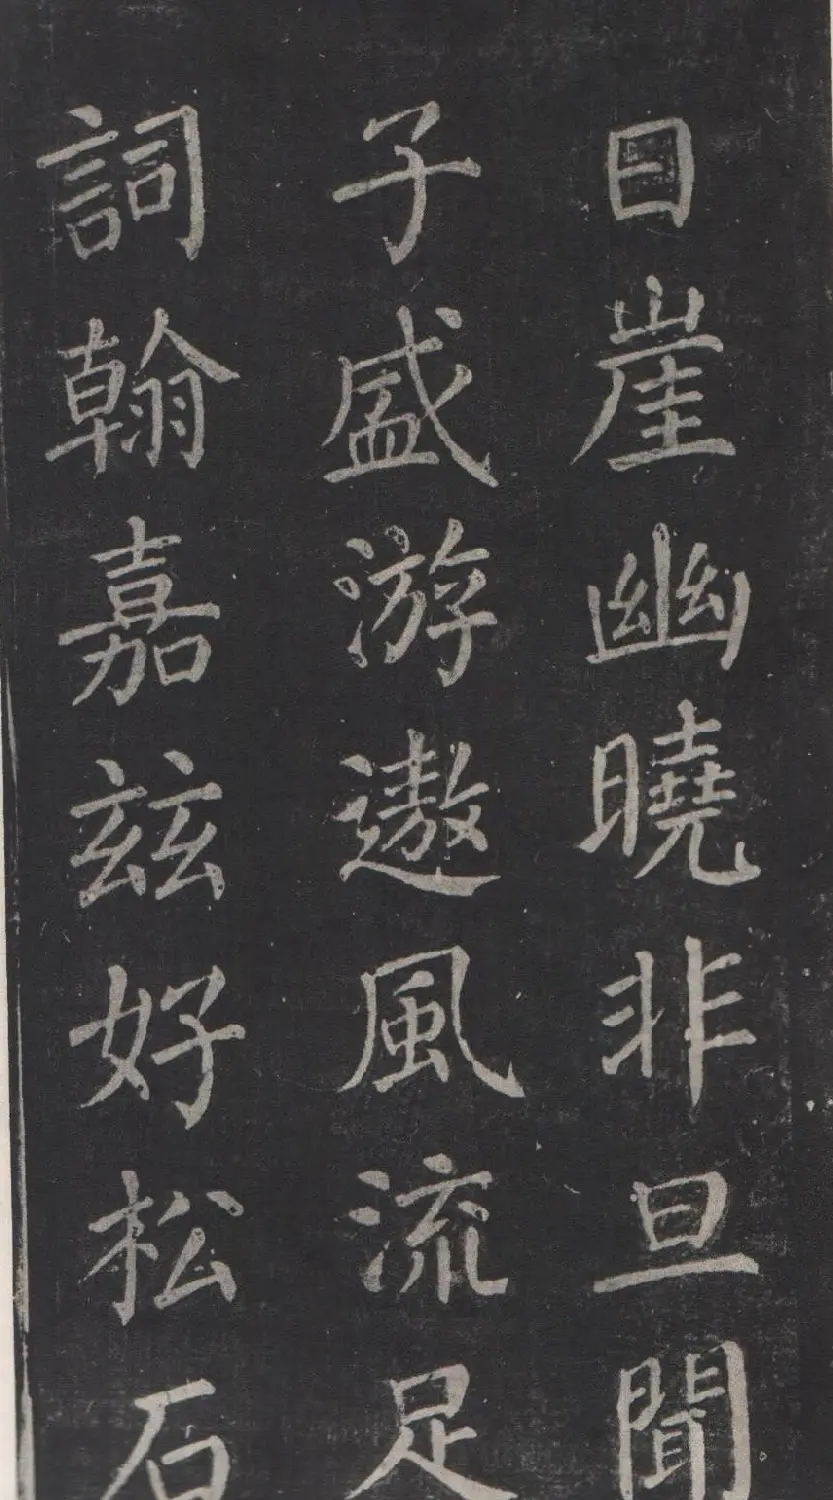 日崖幽曉非旦聞
子盛游遨風流足
詞翰嘉兹好松石